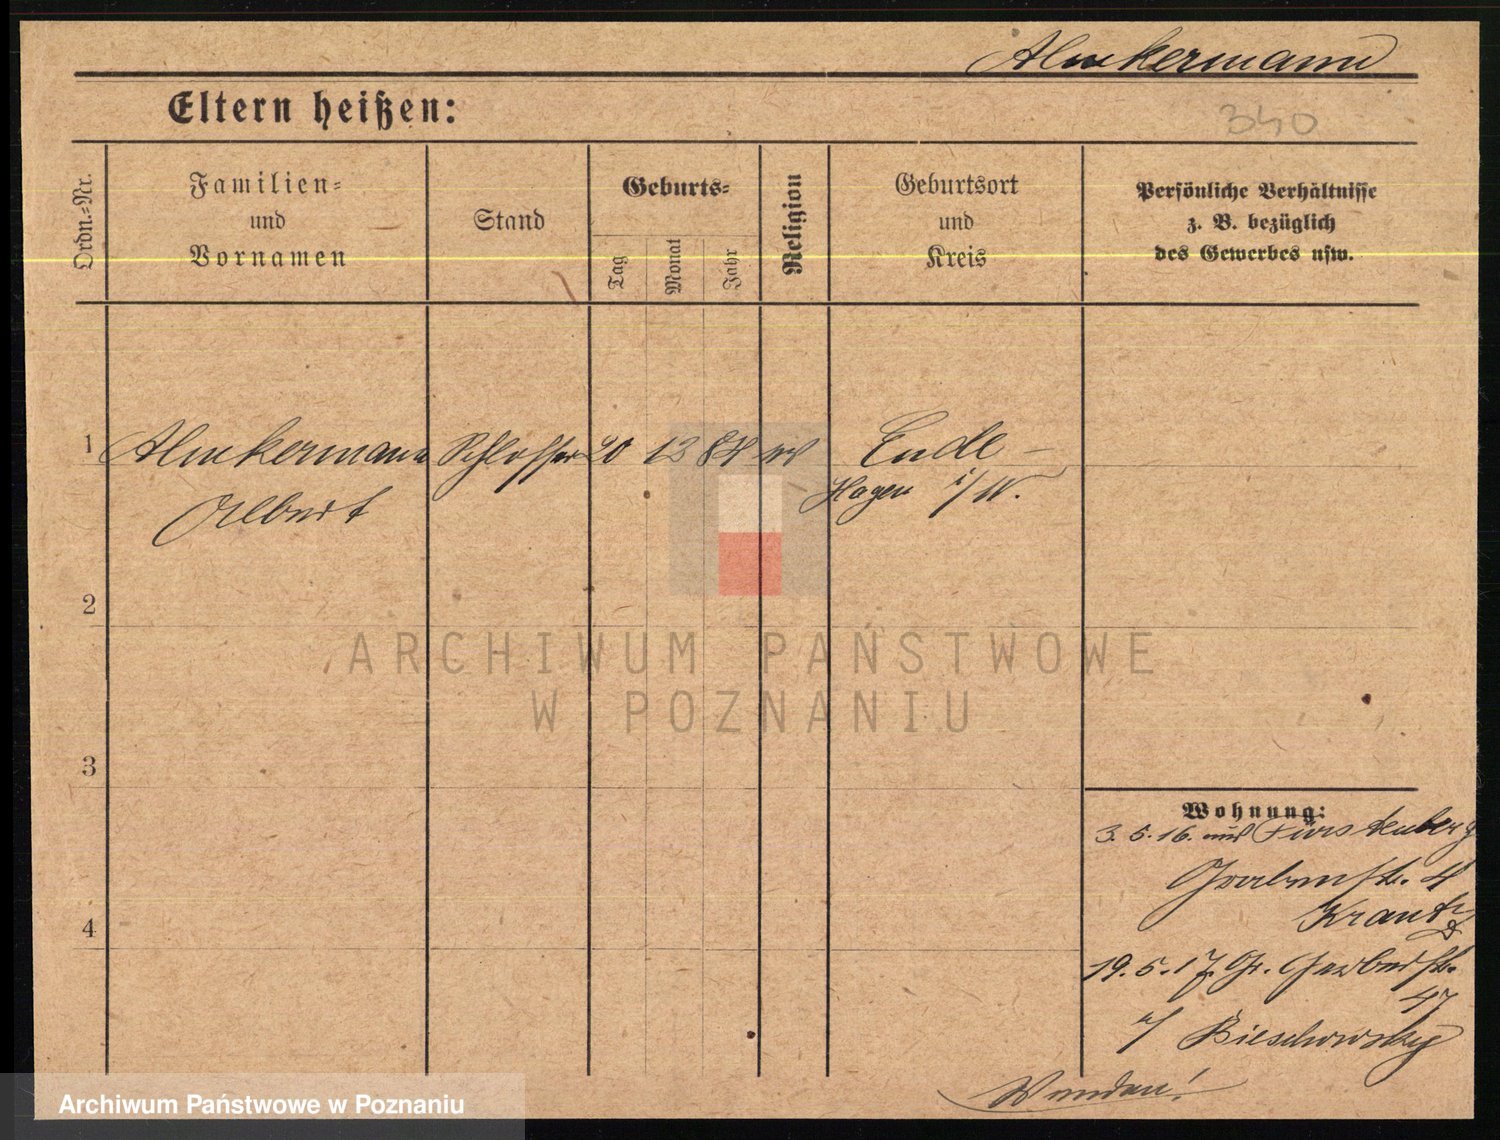 Almkermann
Eltern heißen:
340
Ordn.=Nr.
Familien=
und
Vornamen
Stand
Geburts=
Tag
Monat
Jahr
Religion
Geburtsort
und
Kreis
Persönliche Verhältnisse
z. B. bezüglich
des Gewerbes usw.
1
Almkermann Schlosser 20 12 84 Ende
Albert Hagen i/W.
2
ARCHIWUM PAŃSTWOWE
W POZNANIU
3
Wohnung:
3.5.16. aus Fürstenberg
Grabenstr. 4
Krantz
4
19.5.17. Gr. Gerberstr.
47
b/ Bieschowsky
Wenden!
Archiwum Państwowe w Poznaniu